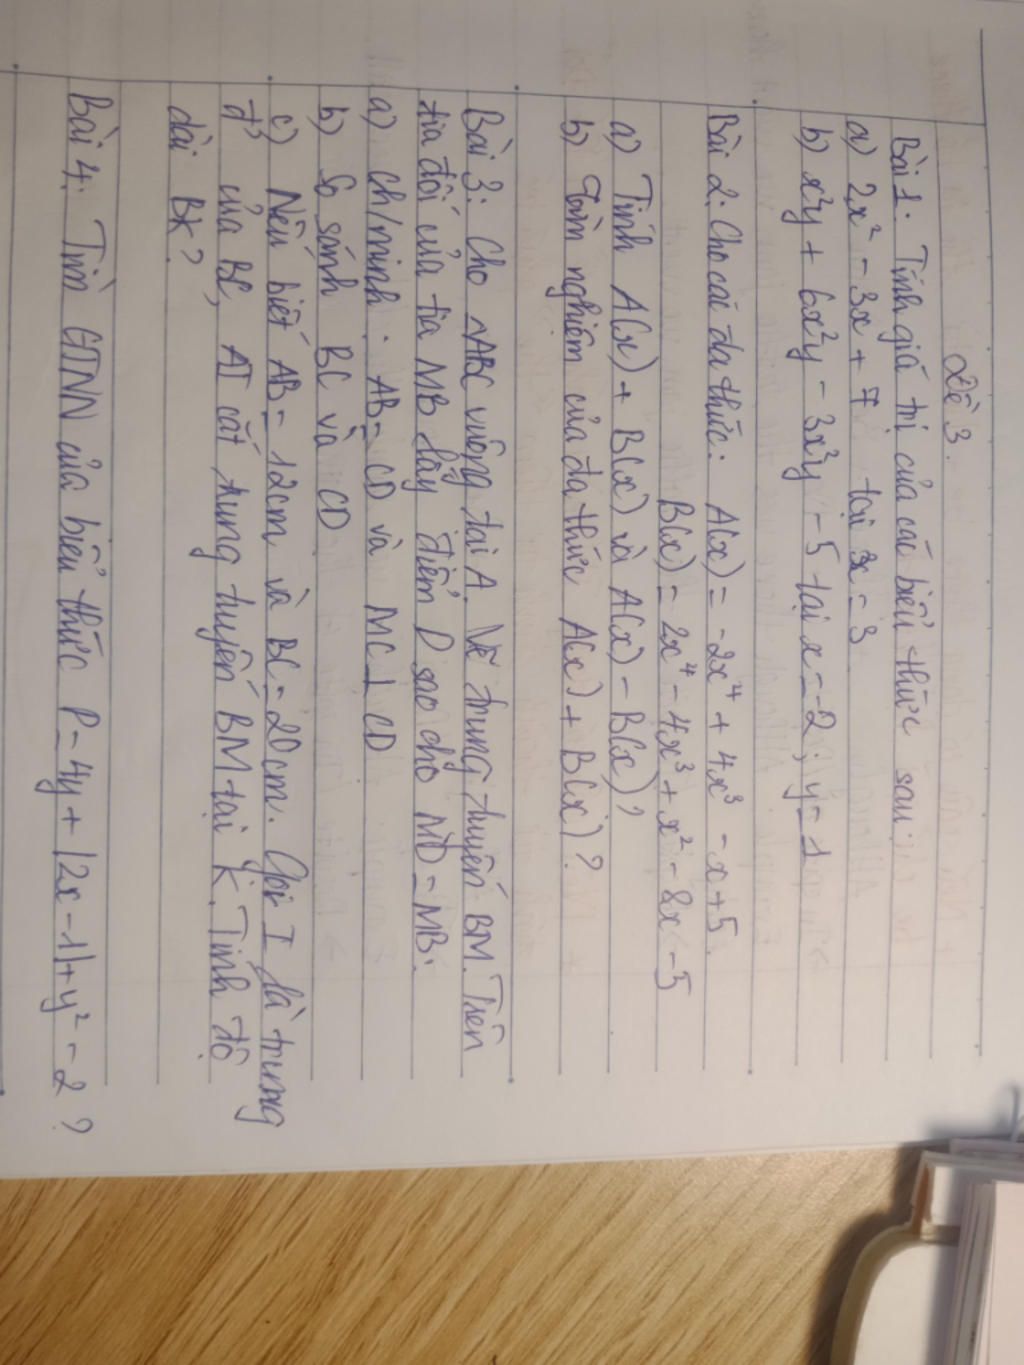 Đề 3.
Bài 1: Tính giá trị của các biểu thức sau:
a) 2x² - 3x + 7 tại x = 3
b) x³y + 6x²y - 3x³y - 5 tại x = -2; y = 1
Bài 2: Cho các đa thức: A(x) = -2x⁴ + 4x³ - x + 5.
B(x) = 2x⁴ - 4x³ + x² - 8x - 5
a) Tính A(x) + B(x) và A(x) - B(x)?
b) Tìm nghiệm của đa thức A(x) + B(x)?
Bài 3: Cho △ABC vuông tại A. Vẽ trung tuyến BM. Trên
tia đối của tia MB lấy điểm D sao cho MD = MB.
a) Ch/minh: AB = CD và MC ⊥ CD
b) So sánh BC và CD
c) Nếu biết AB = 12cm và BC = 20cm. Gọi I là trung
đ' của BC, AI cắt trung tuyến BM tại K. Tính độ
dài BK?
Bài 4: Tìm GTNN của biểu thức P = 4y + |2x - 1| + y² - 2?